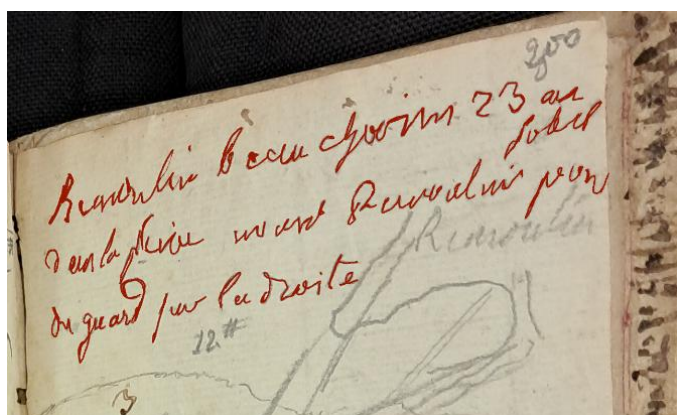 200
Remoulin beau chemin 23 au
soleil
dans la pleine avant Remoulin pon
du guard sur la droite
Remoulin
12 #
3